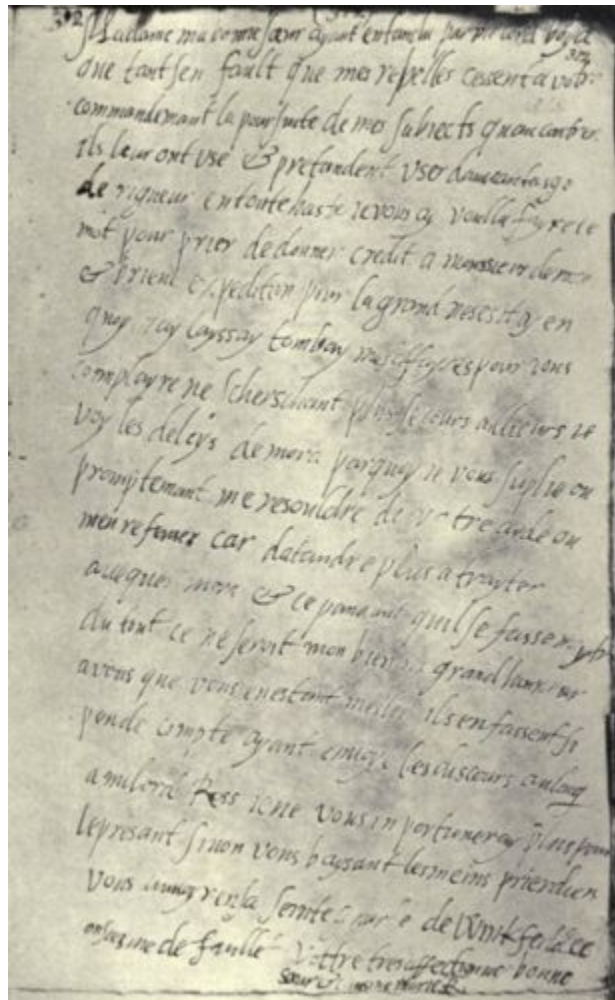 Madame ma bonne sœur ayant entandu par milord boyd
que tant sen fault que mes rebelles cessent a votre
commandemant la poursuite de mes subiects quau contrere
ils leur ont usé & pretandent user davantasge
de rigueur en toute haste ie vous ay voullu fayre ce
mot pour prier de donner credit a monssieur de
& brieue expedition pour la grand nesesitay en
quoy iay layssay tombay mes affayres pour vous
complayre ne scherschant plus secours ailleurs ie
voy les deleys de mora parquoy ie vous suplie ou
promptemant me resouldre de votre aide ou
men refuser car datandre plus a trayter
avecques mora & ce pandant quil se fasse
du tout ce ne seroit mon bien ni grand honneur
a vous que vous en estant meslee ils en fassent si
peu de compte ayant le discours au long
a milord Ross ie ne vous inportuneray plus pour
le presant sinon vous baysant les meins prier dieu
vous en sa seinte de ce
onsiesme de
Vottre tres affectionnee bonne
sœur